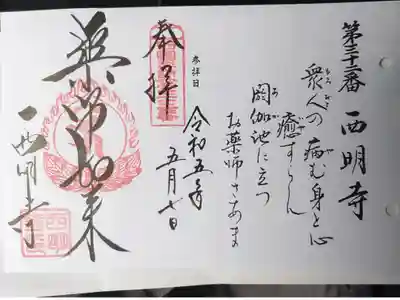 第三十二番 西明寺
衆人の 病む身と心
癒すらん
閼伽池に立つ
お薬師さあま
参拝日
令和五年
五月七日
奉拝
薬師如来
西明寺